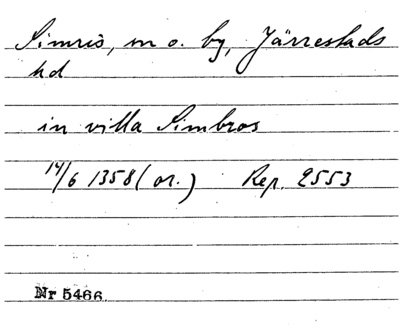 Simris, sn o. by, Järrestads
hd
in villa Simbros
14/6 1358 (or.) Rep. 2553
Nr 5466